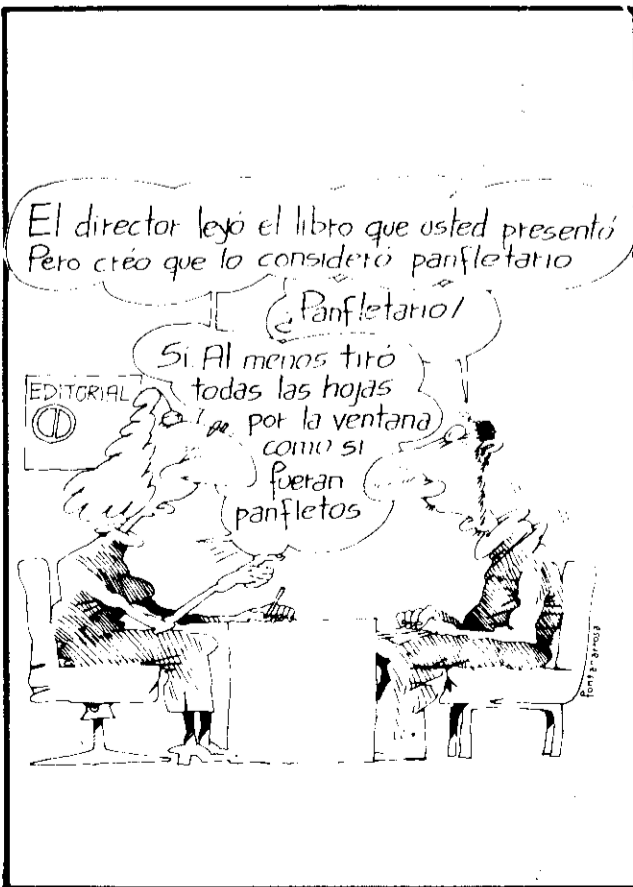 El director leyó el libro que usted presentó
Pero créo que lo consideró panfletario
¿Panfletario/
Si. Al menos tiró
todas las hojas
por la ventana
como si
fueran
panfletos
EDITORIAL
Fontanarrosa